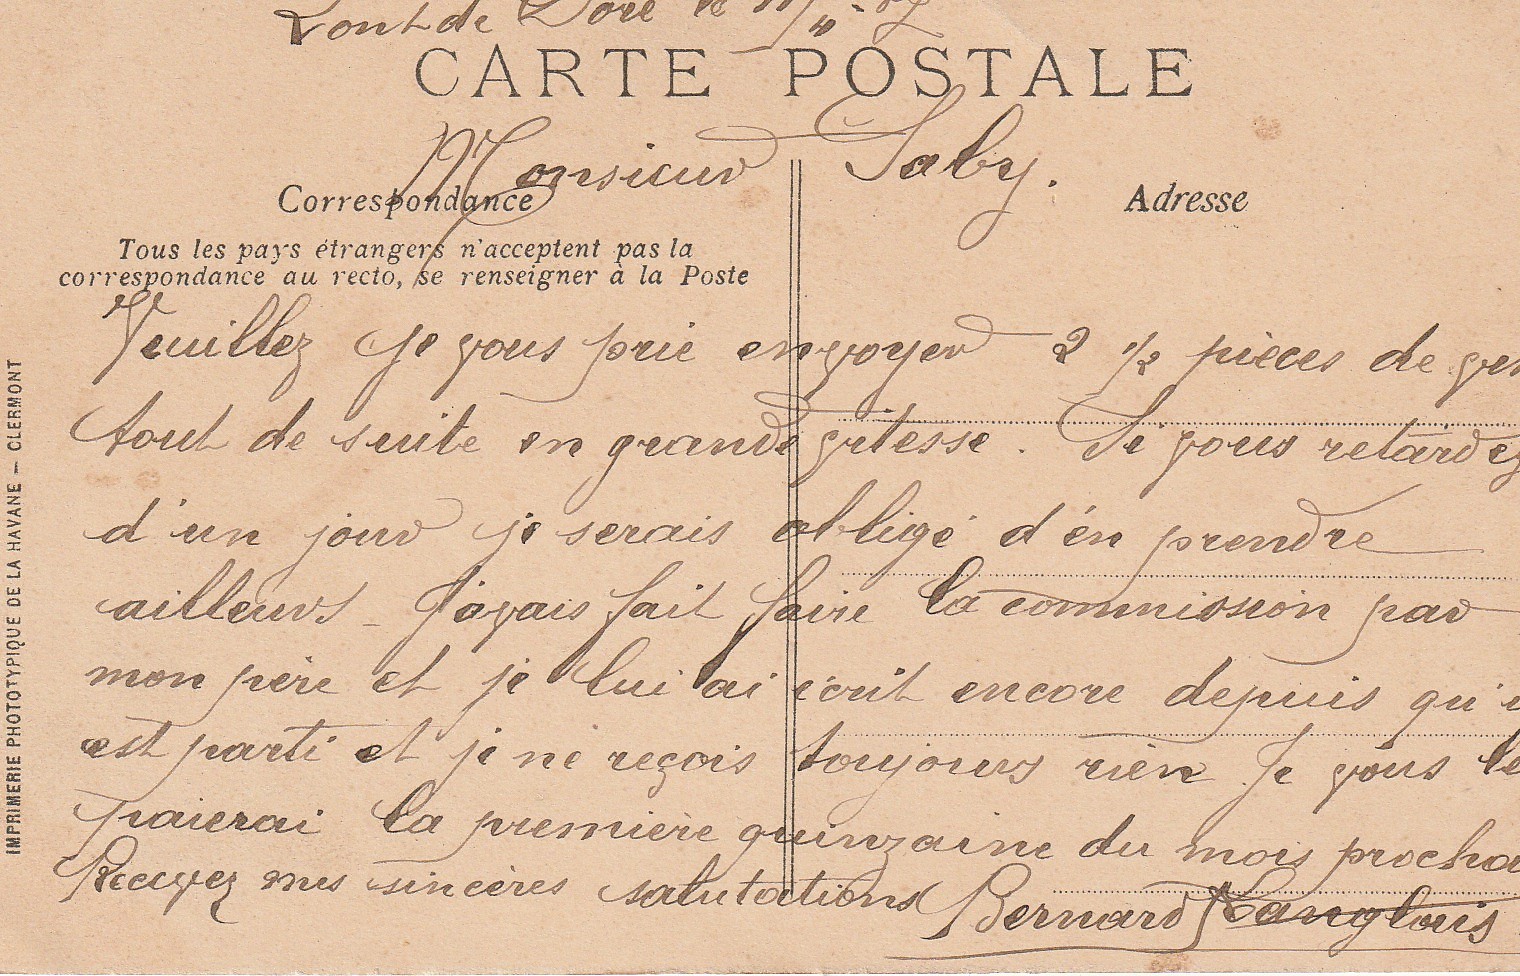 Pont de Dore le
CARTE POSTALE
Monsieur Saby.
Correspondance
Adresse
Tous les pays étrangers n'acceptent pas la
correspondance au recto, se renseigner à la Poste
Veuillez je vous prie envoyer 2 1/2 pièces de
tout de suite en grande vitesse. Si vous retardez
d'un jour je serais obligé d'en prendre
ailleurs - J'avais fait faire la commission par
mon père et je lui ai écrit encore depuis qu'i
est parti et je ne reçois toujours rien Je vous le
paierai la première quinzaine du mois procha
Recevez mes sincères salutations Bernard Langlois
IMPRIMERIE PHOTOTYPIQUE DE LA HAVANE — CLERMONT